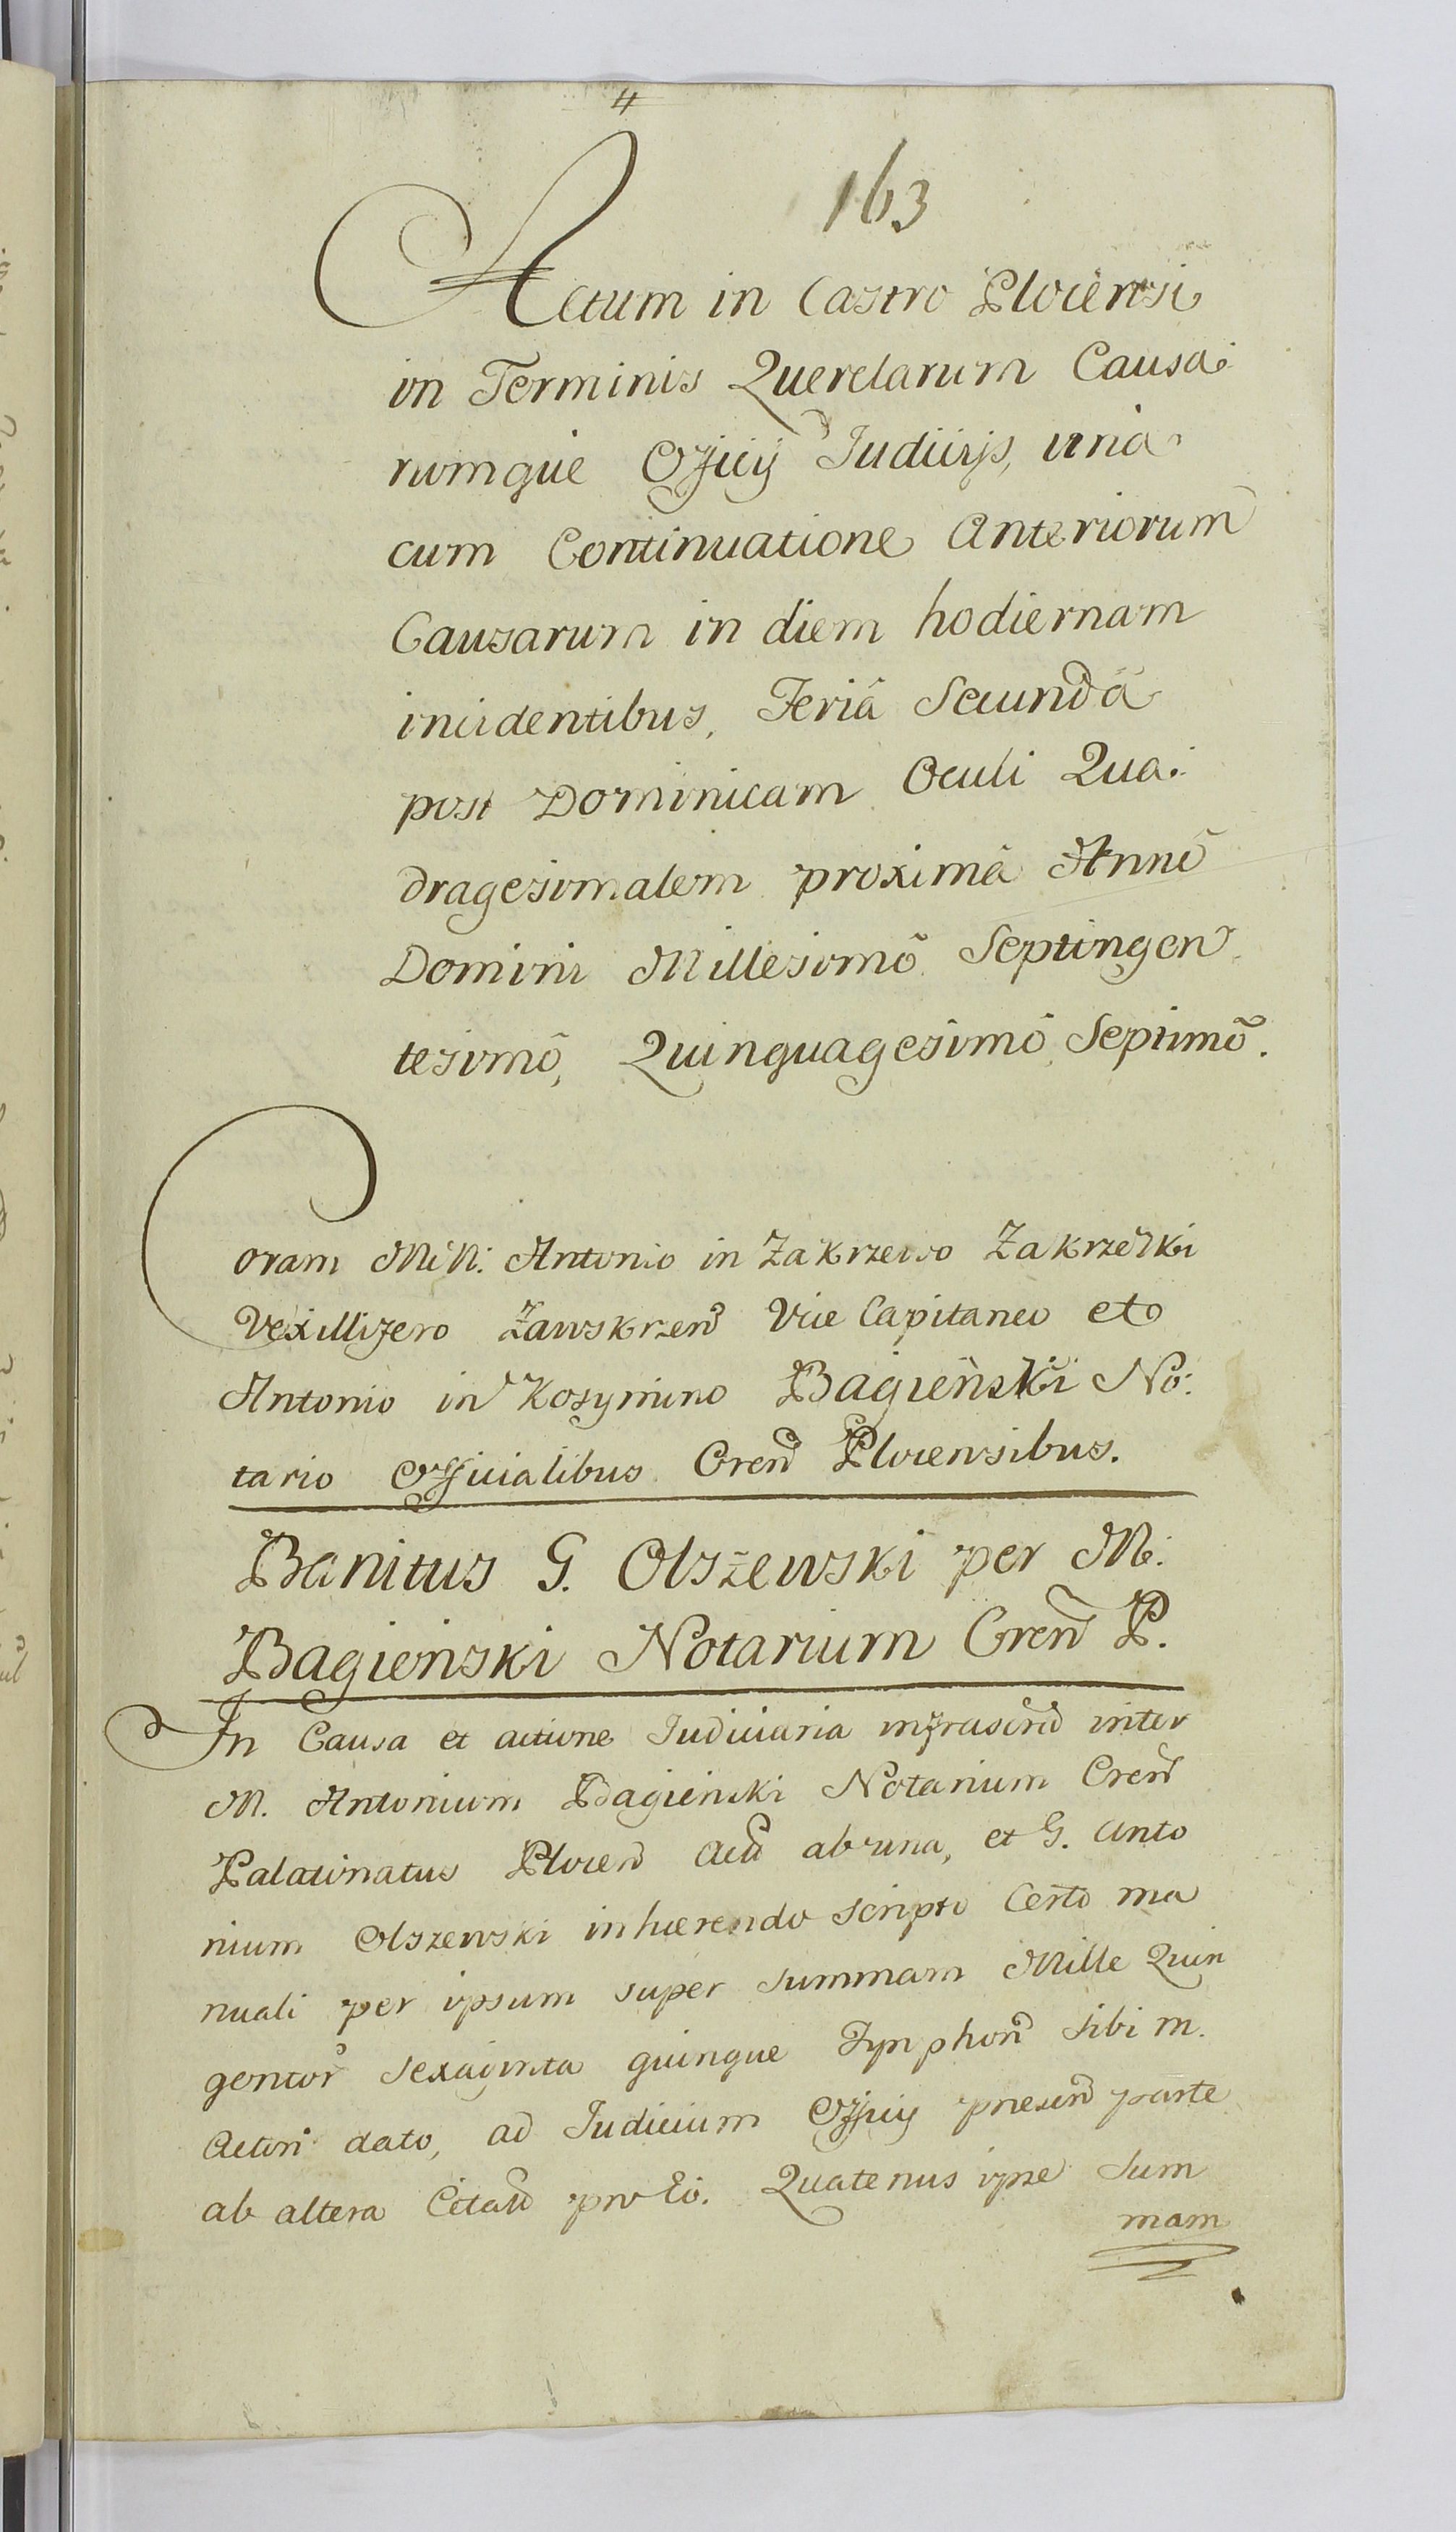 163
Actum in Castro Plocensi
in Terminis Querelarum Causa:
rumque Officij Judicijs, una
cum Continuatione Anteriorum
Causarum in diem hodiernam
incidentibus, Feriâ Secundâ
post Dominicam Oculi Qua:
dragesimalem proximâ Annô
Domini Millesimô Septingen
tesimô, Quinquagesimô Septimô.
Coram MM: Antonio in Zakrzewo Zakrzewski
Vexillifero Zawskrzen Vice Capitaneo et
Antonio in Kosymino Bagieński No:
tario Officialibus Cren Plocensibus.
Banitus G. Olszewski per M:
Bagienski Notarium Cren P.
In Causa et actione Judiciaria infrascrid inter
M. Antonium Bagienski Notarium Cren
Palatinatus Plocen ab una, et G. Anto
nium Olszewski inhærendo scripto Certo ma
nuali per ipsum super summam Mille Quin
gentor sexaginta quinque Tynphon sibi M.
Actori dato, ad Judicium Officij præsen parte
ab altera Citatt pro Eo. Quatenus ipse Sum
mam